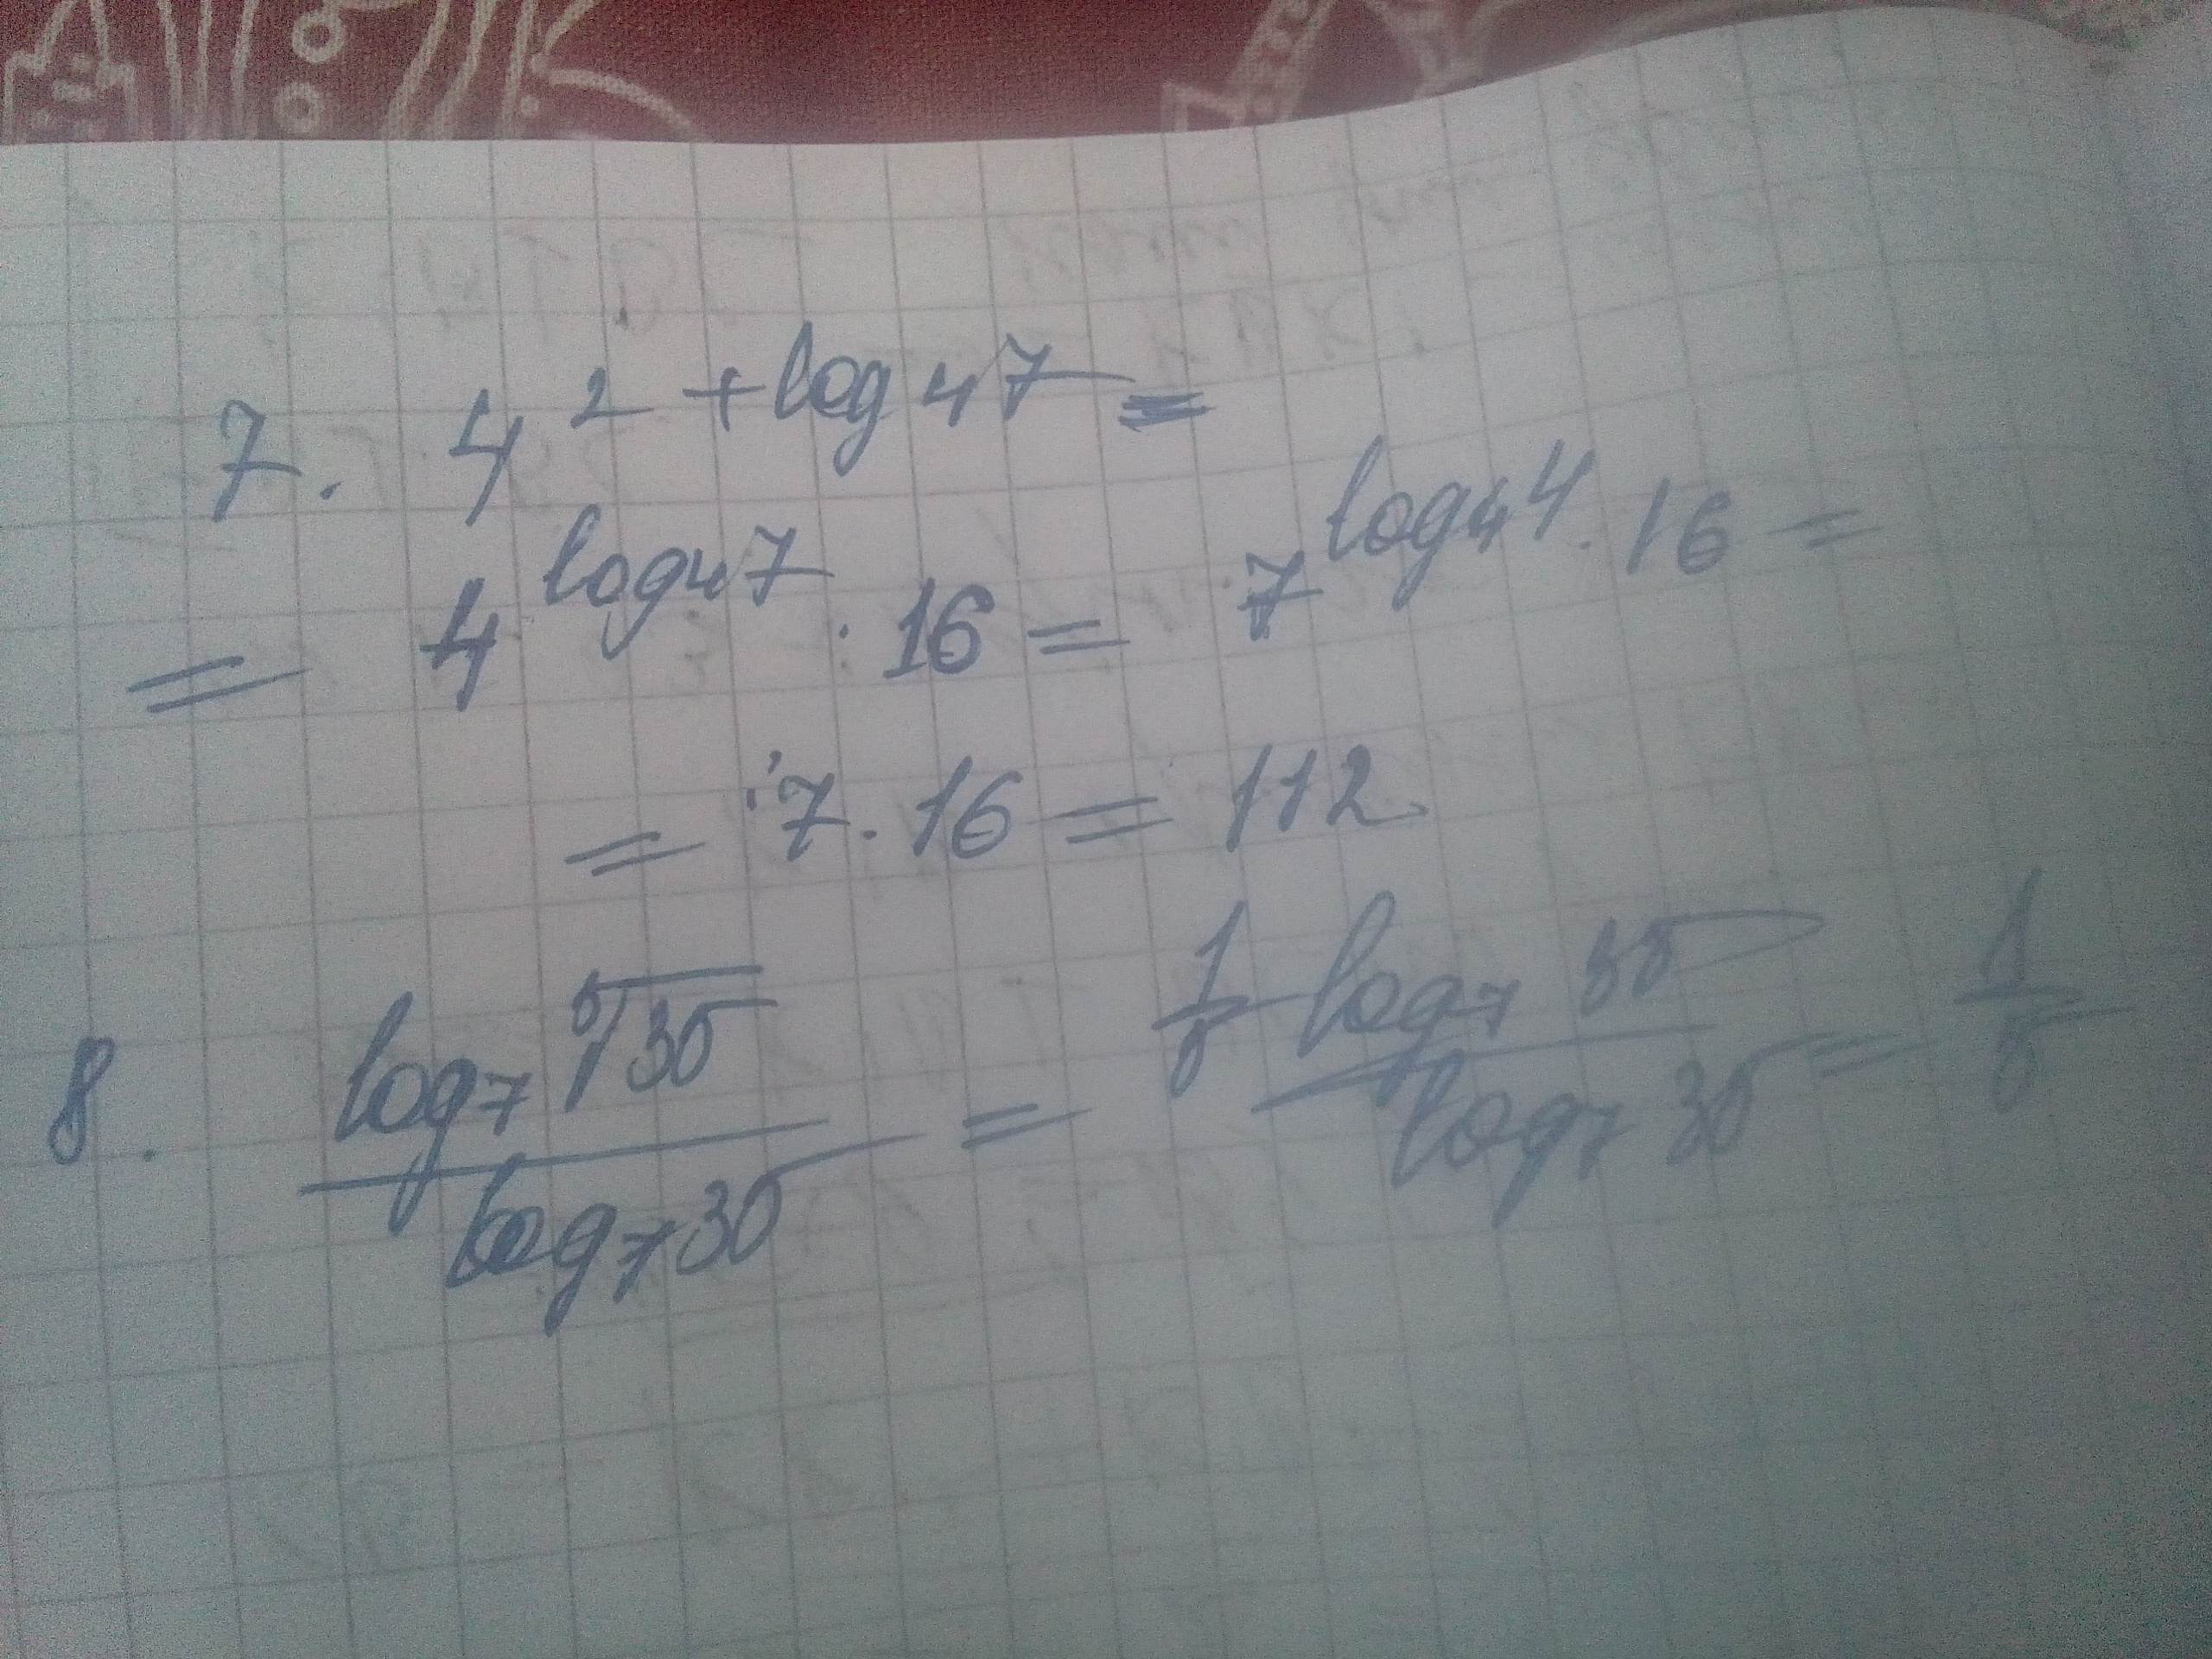 7. 4^{2 + log_4 7} =
= 4^{log_4 7} · 16 = 7^{log_4 4} · 16 =
= 7 · 16 = 112
8. \frac{log_7 \sqrt[5]{35}}{log_7 35} = \frac{\frac{1}{5} log_7 35}{log_7 35} = \frac{1}{5}